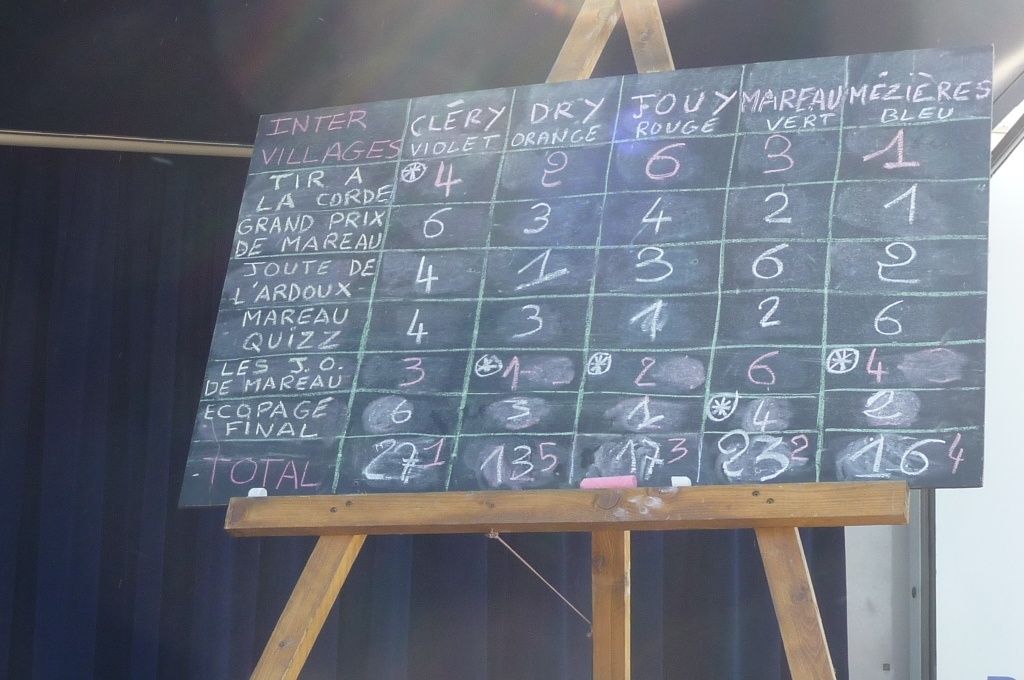 INTER CLÉRY DRY JOUY MAREAU MÉZIÈRES
VILLAGES VIOLET ORANGE ROUGE VERT BLEU
TIR A
LA CORDE 4 2 6 3 1
GRAND PRIX
DE MAREAU 6 3 4 2 1
JOUTE DE
L'ARDOUX 4 1 3 6 2
MAREAU
QUIZZ 4 3 1 2 6
LES J.O.
DE MAREAU 3 1 2 6 4
ECOPAGÉ
FINAL 6 3 1 4 2
TOTAL 27 1 13 5 17 3 23 2 16 4